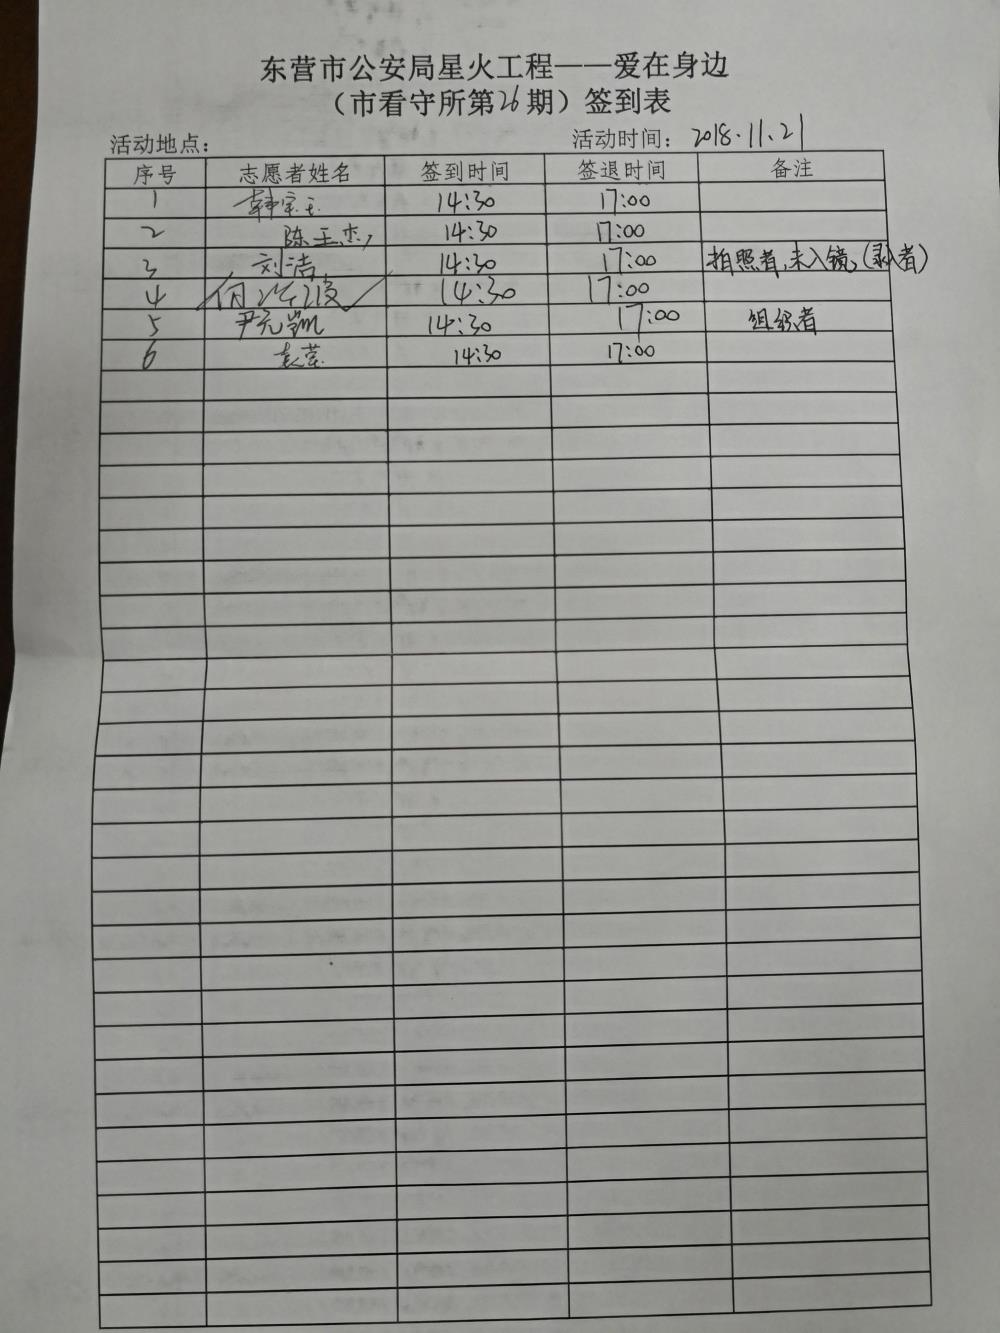 东营市公安局星火工程——爱在身边
（市看守所第26期）签到表
活动地点： 活动时间：2018.11.21
序号 志愿者姓名 签到时间 签退时间 备注
1 韩宝玉 14:30 17:00
2 陈玉杰 14:30 17:00
3 刘洁 14:30 17:00 拍照者,未入镜。(录入者)
4 14:30 17:00
5 尹元凯 14:30 17:00 组织者
6 袁蕊 14:30 17:00